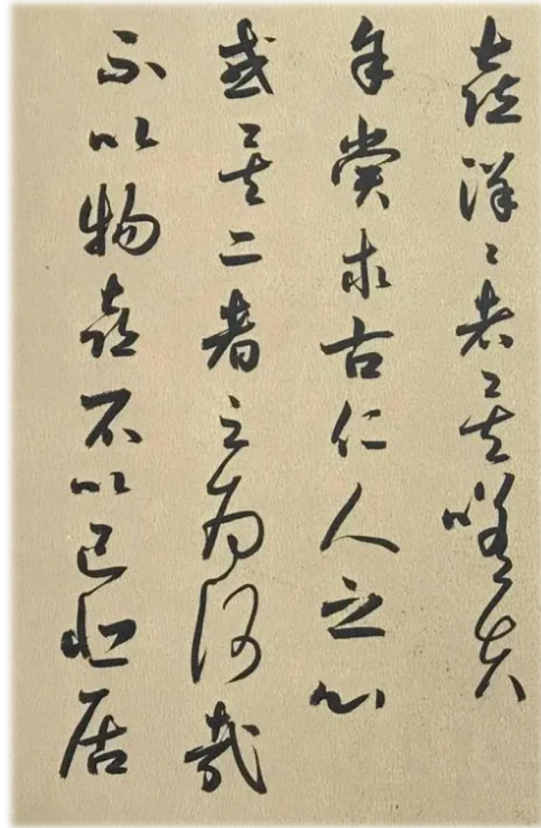 喜洋〻者矣嗟夫
余嘗求古仁人之心
或異二者之為何哉
不以物喜不以己悲居